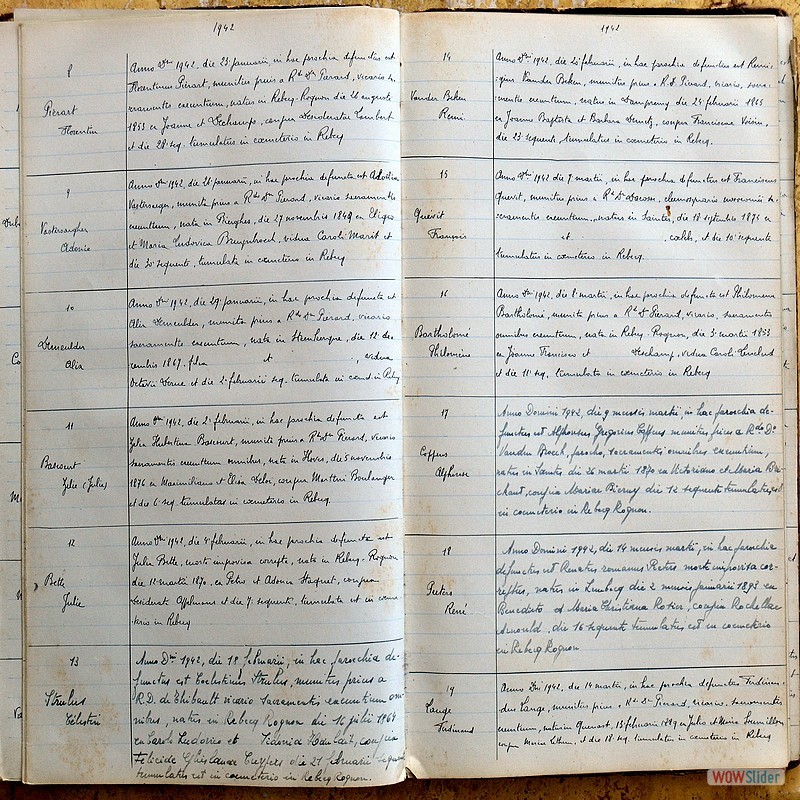 1942
8
Pierart
Florentin
Anno Dni 1942, die 23 januarii, in hac parochia defunctus est
Florentinus Pierart, munitus prius a Rdo Dno Pierard, vicario sa-
cramentis exeuntium, natus in Rebecq-Rognon die 26 augusti
1853 ex Joanne et Dechamps, conjux Lambert
et die 28 seq. tumulatus in cœmeterio in Rebecq.
9
Adonie
Anno Dni 1942, die 28 januarii, in hac parochia defuncta est
munita prius a Rdo Dno Pierard, vicario sacramentis
exeuntium, nata in Bierghes, die 27 novembris 1849 ex Eligio
et Maria Ludovica vidua Caroli et
die 30 sequente, tumulata in cœmeterio in Rebecq
10
Demeulder
Alix
Anno Dni 1942, die 29 januarii, in hac parochia defuncta est
Alix Demeulder, munita prius a Rdo Dno Pierard, vicario
sacramentis exeuntium, nata in Steenkerque, die 12 de-
cembris 1867. filia et , vidua
Octavii et die 2 februarii seq. tumulata in cœmet. in Rebecq
11
Bascourt
Julie (Jules)
Anno Dni 1942, die 2 februarii, in hac parochia defuncta est
Julia Hubertina Bascourt, munita prius a Rdo Dno Pierard, vicario
sacramentis exeuntium omnibus, nata in Hoves, die 5 novembris
1876 ex Maximiliano et Elisa Deloz, conjux Martini Boulanger
et die 6 seq. tumulatus in cœmeterio in Rebecq.
12
Bette
Julie
Anno Dni 1942, die 4 februarii, in hac parochia defuncta est
Julia Bette, morte improvisa correpta, nata in Rebecq-Rognon
die 11 martii 1870, ex Petro et Adonia Haquet, conjux
Desiderati et die 7 sequenti, tumulata est in cœme-
terio in Rebecq
13
Strulus
Célestin
Anno Dni 1942, die 18 februarii, in hac parochia de-
functus est Coelestinus Strulus, munitus prius a
R.D. de Thibault vicario sacramentis exeuntium om-
nibus, natus in Rebecq Rognon die 16 julii 1864
ex Carolo Ludovico et Sidonia conjux
Felicide Ghislaine Cuypers die 21 februarii sequente
tumulatus est in coemeterio in Rebecq Rognon.
1942
14
Vander Beken
Remi
Anno Dni 1942, die 20 februarii, in hac parochia defunctus est Remi-
gius Vander Beken, munitus prius a R.D. Pierard, vicario, sacra-
mentis exeuntium, natus in Dampremy die 24 februarii 1865
ex Joanne Baptista et Barbara conjux Franciscae Voisin,
die 23 sequente, tumulatus in cœmeterio in Rebecq.
15
Quévit
François
Anno Dni 1942 die 7 martii, in hac parochia defunctus est Franciscus
Quevit, munitus prius a Rdo Dno eleemosynario sa-
cramentis exeuntium, natus in Saintes, die 18 septembris 1875 ex
et , cœlebs, et die 10 sequente
tumulatus in cœmeterio in Rebecq.
16
Bartholomé
Philomène
Anno Dni 1942, die 8 martii, in hac parochia defuncta est Philomena
Bartholomé, munita prius a Rdo Dno Pierard, vicario, sacramentis
omnibus exeuntium, nata in Rebecq-Rognon, die 3 martii 1853
ex Joanne Francisco et Deschamp, vidua Caroli
et die 11 seq. tumulata in cœmeterio in Rebecq
17
Coppens
Alphonse
Anno Domini 1942, die 9 mensis martii, in hac parochia de-
functus est Alphonsus Gregorius Coppens munitus prius a Rdo Do
Vanden Bosch, parocho, sacramentis omnibus exeuntium,
natus in Saintes die 26 martii 1870 ex Victoriano et Maria Du-
chant, conjux Mariae Bierny die 12 sequente tumulatus est
in coemeterio in Rebecq Rognon.
18
Peeters
René
Anno Domini 1942, die 14 mensis martii, in hac parochia
defunctus est Renatus romanus Peeters morte improvisa cor-
reptus, natus in Lembecq die 2 mensis januarii 1898 ex
Benedicto et Maria Christiana Rosier, conjux Rachellae
Arnould, die 16 sequente tumulatus est in coemeterio
in Rebecq Rognon
19
Lange
Ferdinand
Anno Dni 1942, die 14 martii, in hac parochia defunctus Ferdinan-
dus Lange, munitus prius a Rdo D Pierard, vicario, sacramentis
exeuntium, natus in Quenast, 13 februarii 1897 ex Julio et Maria
conjux Maria et die 18 seq. tumulatus in cœmeterio in Rebecq
WOWSlider